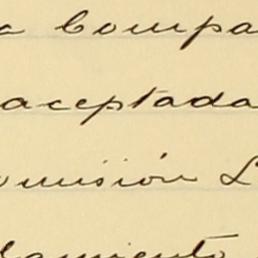 a Compa
aceptada
omisión L
lamiento